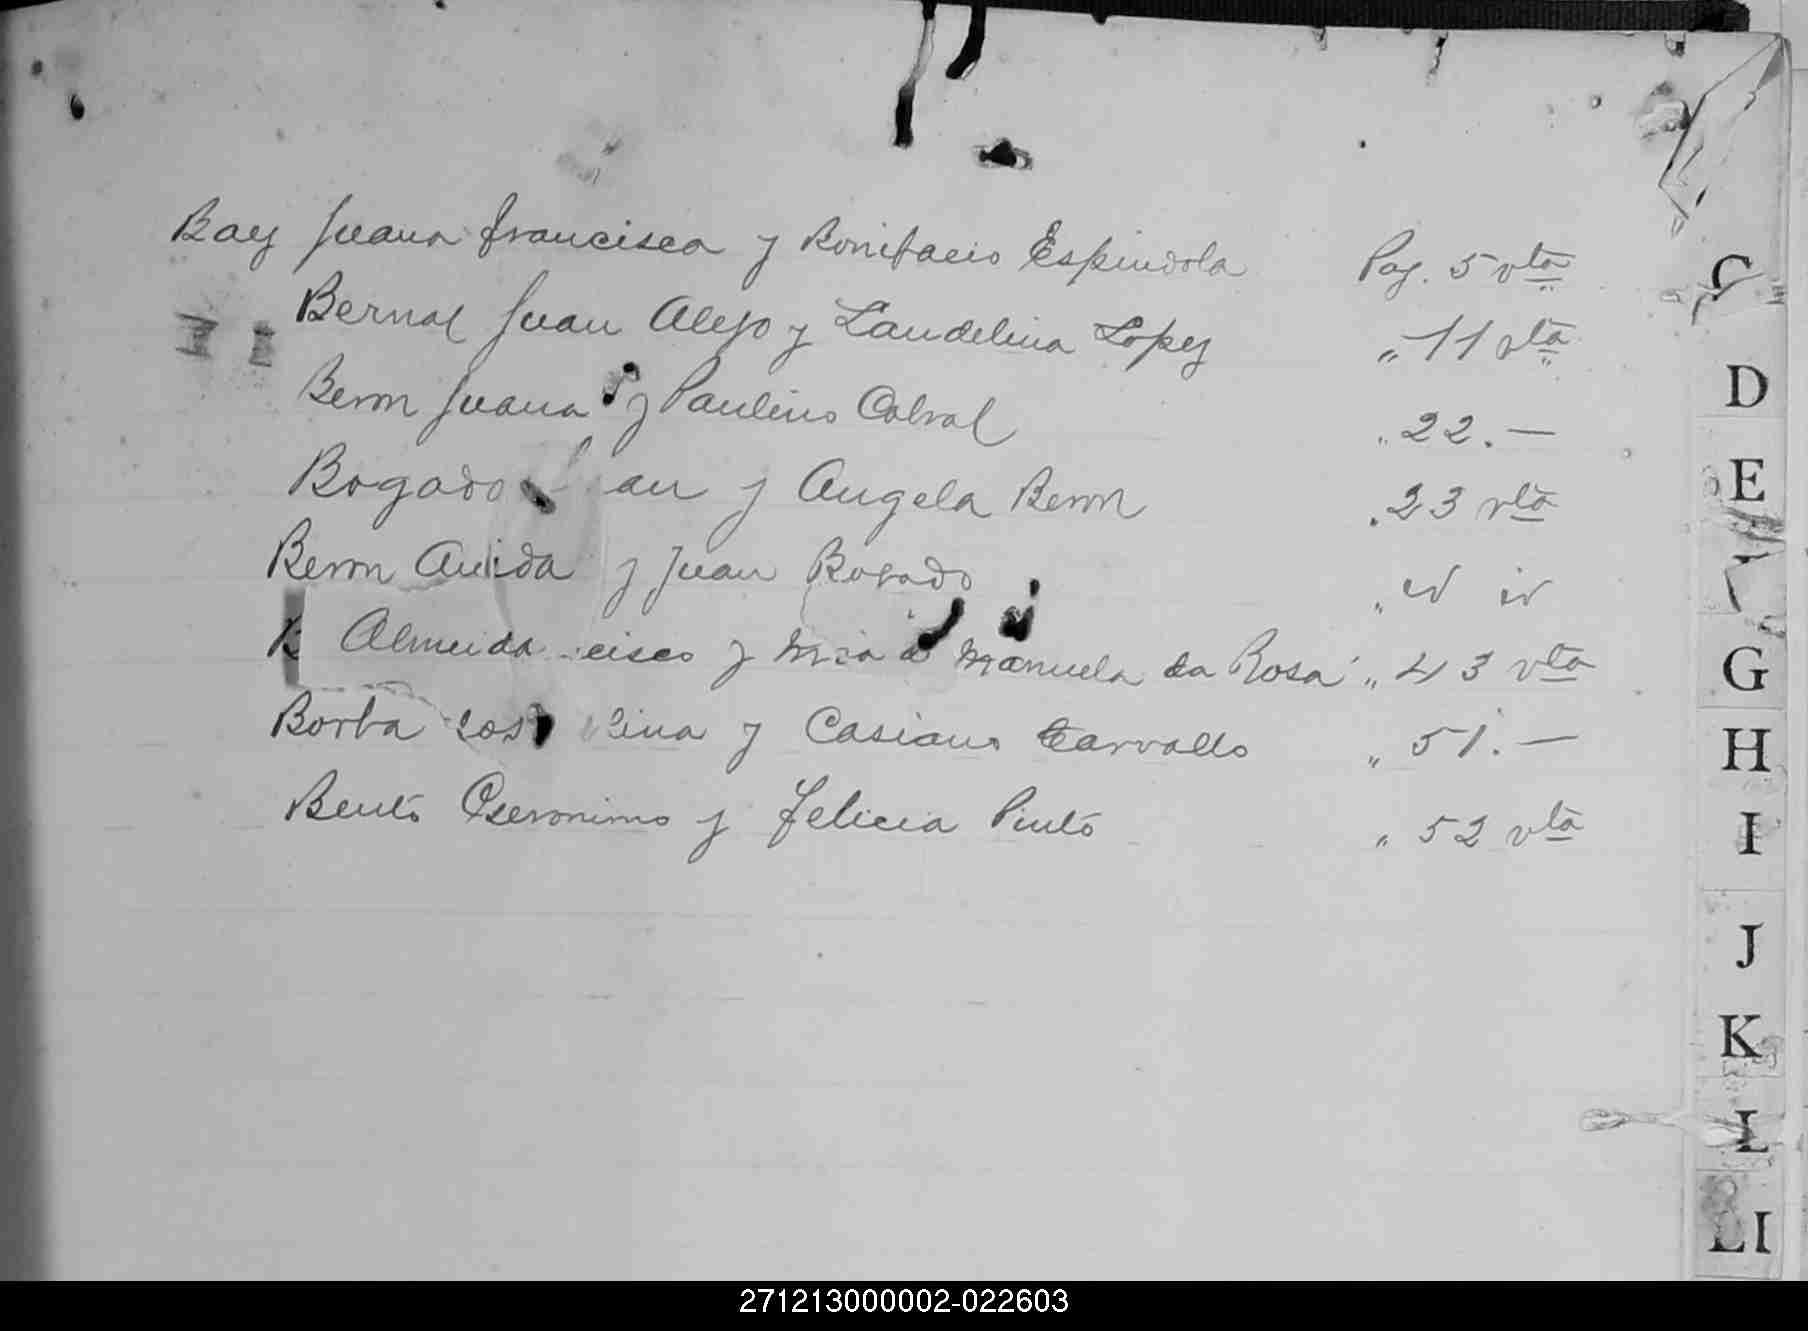 Bay Juana Francisca y Bonifacio Espindola Pag. 5 vta
Bernal Juan Alejo y Laudelina Lopez " 11 vta
Bern Juana y Paulino Cabral " 22.—
Bogado an y Angela Bern " 23 vta
Bern y Juan Bogado " id id
B Almeida cisco y Manuela da Rosa " 43 vta
Borba lina y Casiano Carvallo " 51.—
Bento Geronimo y Felicia Pinto " 52 vta
C
D
E
G
H
I
J
K
L
LI
271213000002-022603